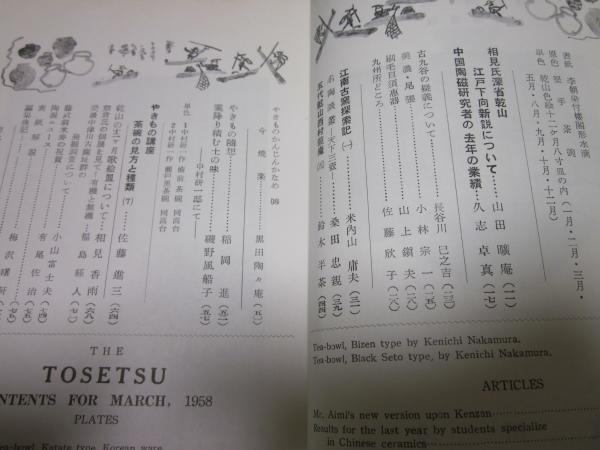 表紙 李朝染付楼閣形水滴
原色 堅手茶碗
単色 乾山色絵十二ケ月八寸皿の内(一月・二月・三月・
五月・八月・九月・十月・十二月)
相見氏深省乾山
江戸下向新説について……山田曠庵(一一)
中国陶磁研究者の去年の業績…久志卓真(一七)
古九谷の疑義について……長谷川巳之吉(二三)
美濃・尾張……小林宗一(二五)
刷毛目須恵器……山上鎭夫(二八)
九州所どころ……佐藤欣子(二八)
江南古窯探索記(一)……米内山庸夫(三一)
名海談叢—天下三壺—……桑田忠親(三九)
鈴木半茶(四四)
やきものかんじんかなめ(38)
今焼楽……黒田陶々庵(五一)
やきもの随想
稲岡進(五五)
薬降り積む七の味……磯野風船子(五七)
—中村研一邸にて—
単色 1 中村研一作 備前茶碗 同高台
2 中村研一作 瀬戸黒茶碗 同高台
やきもの講座
茶碗の見方と種類(7)……佐藤進三(六四)
乾山の十二ケ月歌絵皿について…相見香雨(六八)
福島経人(七一)
小山富士夫
陶説ニュース……有尾佐治(七五)
表紙解説……梅沢曙軒
編集後記
THE
TOSETSU
CONTENTS FOR MARCH, 1958
PLATES
Tea-bowl, Katate type, Korean ware
Tea-bowl, Bizen type by Kenichi Nakamura.
Tea-bowl, Black Seto type, by Kenichi Nakamura.
ARTICLES
Mr. Aimi's new version upon Kenzan
Results for the last year by students specialize
in Chinese ceramics